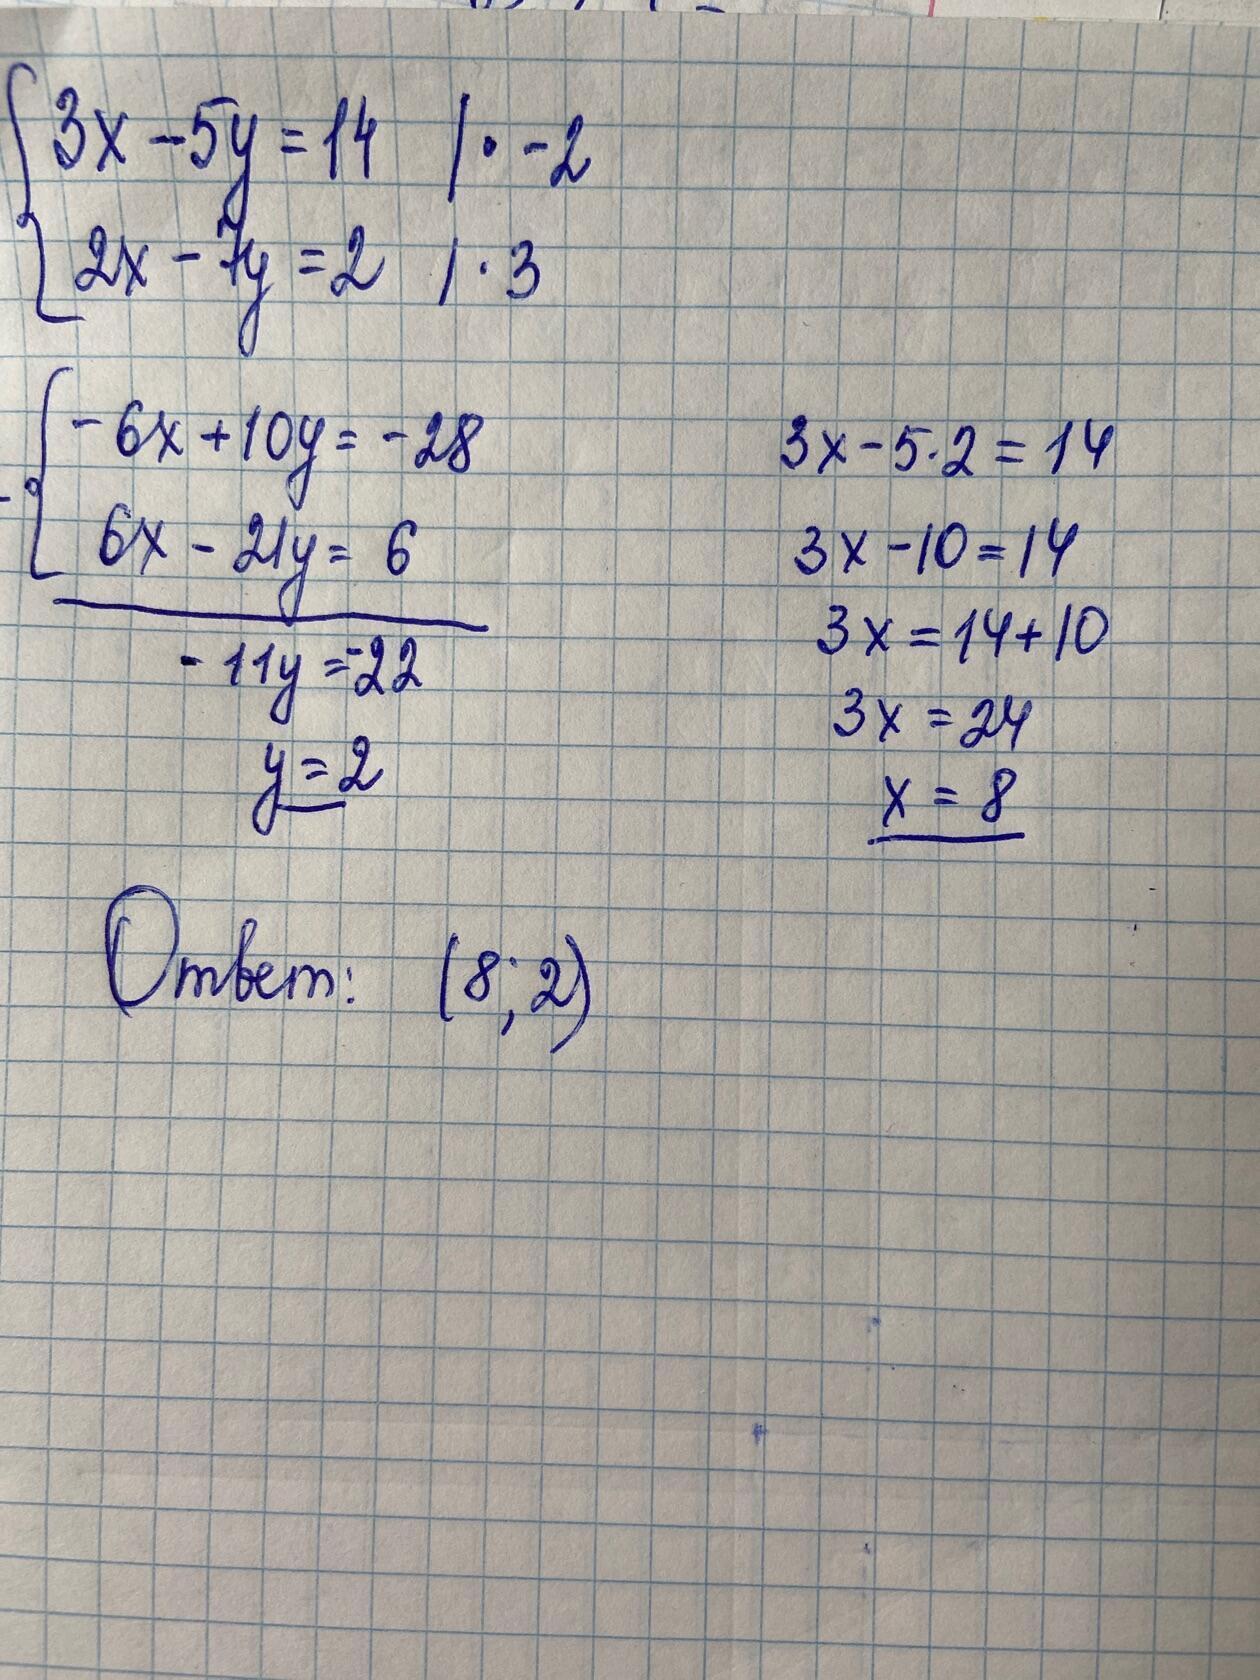 3x - 5y = 14 | · -2
2x - 7y = 2 | · 3
-6x + 10y = -28
6x - 21y = 6
-11y = -22
y = 2
3x - 5·2 = 14
3x - 10 = 14
3x = 14 + 10
3x = 24
x = 8
Ответ: (8; 2)